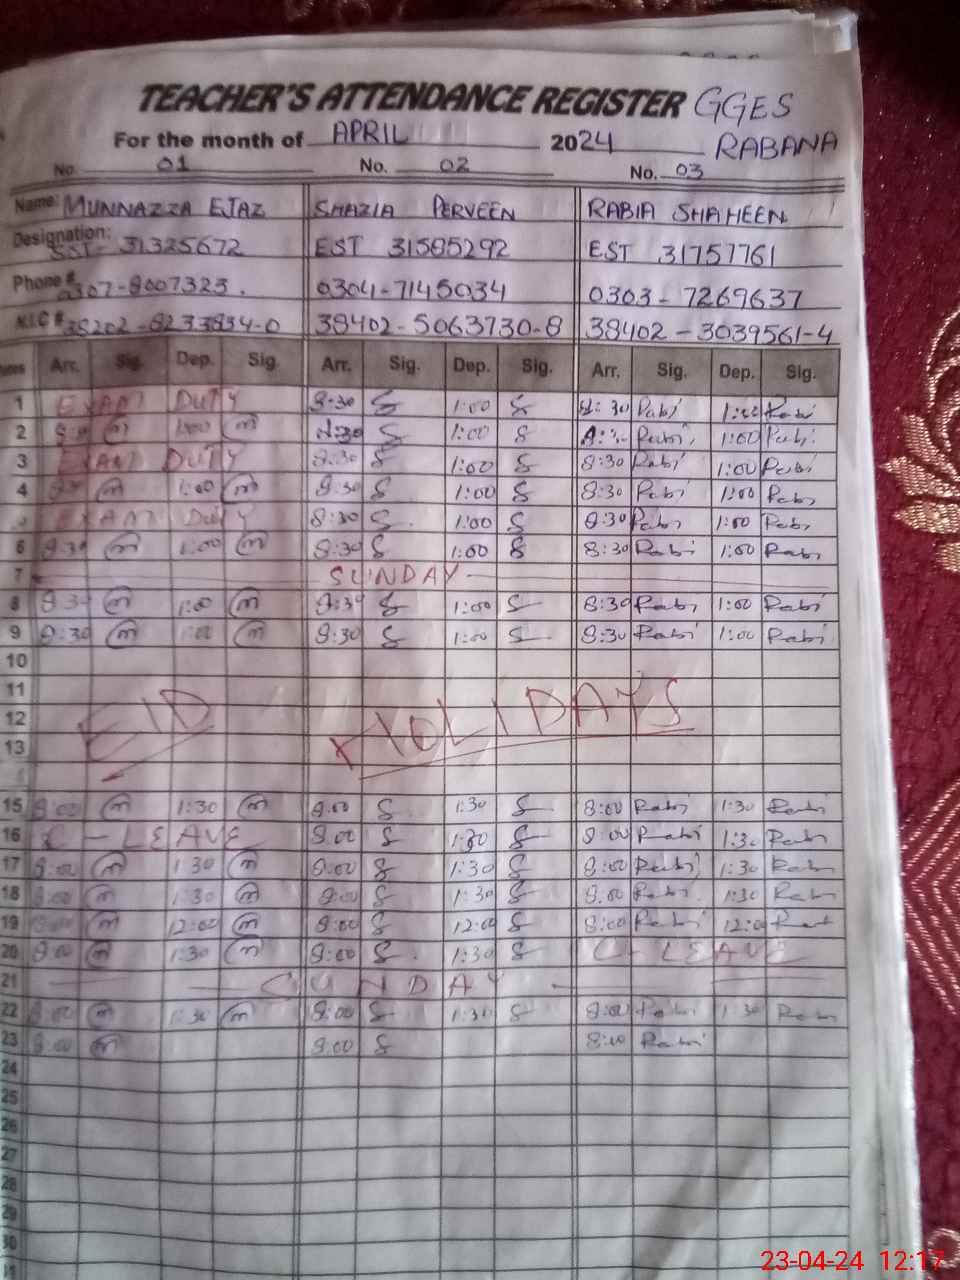 TEACHER'S ATTENDANCE REGISTER GGES
For the month of APRIL 2024 RABANA
No. 01 No. 02 No. 03
Name: MUNNAZZA EJAZ SHAZIA PERVEEN RABIA SHAHEEN
Designation: SST- 31325672 EST 31585292 EST 31757761
Phone # 0307-8007323. 0304-7145034 0303-7269637
N.I.C # 38202-8233834-0 38402-5063730-8 38402-3039561-4
Arr. Sig. Dep. Sig. Arr. Sig. Dep. Sig. Arr. Sig. Dep. Sig.
1 EXAM DUTY 8:30 S 1:00 S 8:30 Rabi 1:00 Rabi
2 m 1:00 m 8:30 S 1:00 S Rabi 1:00 Rabi
3 EXAM DUTY 8:30 S 1:00 S 8:30 Rabi 1:00 Rabi
4 m 1:00 m 8:30 S 1:00 S 8:30 Rabi 1:00 Rabi
EXAM DUTY 8:30 S 1:00 S 8:30 Rabi 1:00 Rabi
6 8:30 m 1:00 m 8:30 S 1:00 S 8:30 Rabi 1:00 Rabi
7 SUNDAY
8 8:30 m 1:00 m 8:30 S 1:00 S 8:30 Rabi 1:00 Rabi
9 8:30 m 1:00 m 8:30 S 1:00 S 8:30 Rabi 1:00 Rabi
10
11
12 EID HOLIDAYS
13
15 8:00 m 1:30 m 8:00 S 1:30 S 8:00 Rabi 1:30 Rabi
16 C-LEAVE 8:00 S 1:30 S 8:00 Rabi 1:30 Rabi
17 8:00 m 1:30 m 8:00 S 1:30 S 8:00 Rabi 1:30 Rabi
18 8:00 m 1:30 m 8:00 S 1:30 S 8:00 Rabi 1:30 Rabi
19 8:00 m 12:00 m 8:00 S 12:00 S 8:00 Rabi 12:00
20 8:00 m 1:30 m 8:00 S 1:30 S C-LEAVE
21 SUNDAY
22 8:00 m 1:30 m 8:00 S 1:30 S 8:00 Rabi 1:30 Rabi
23 8:00 m 8:00 S 8:00 Rabi
24
25
26
27
28
29
30
23-04-24 12:17